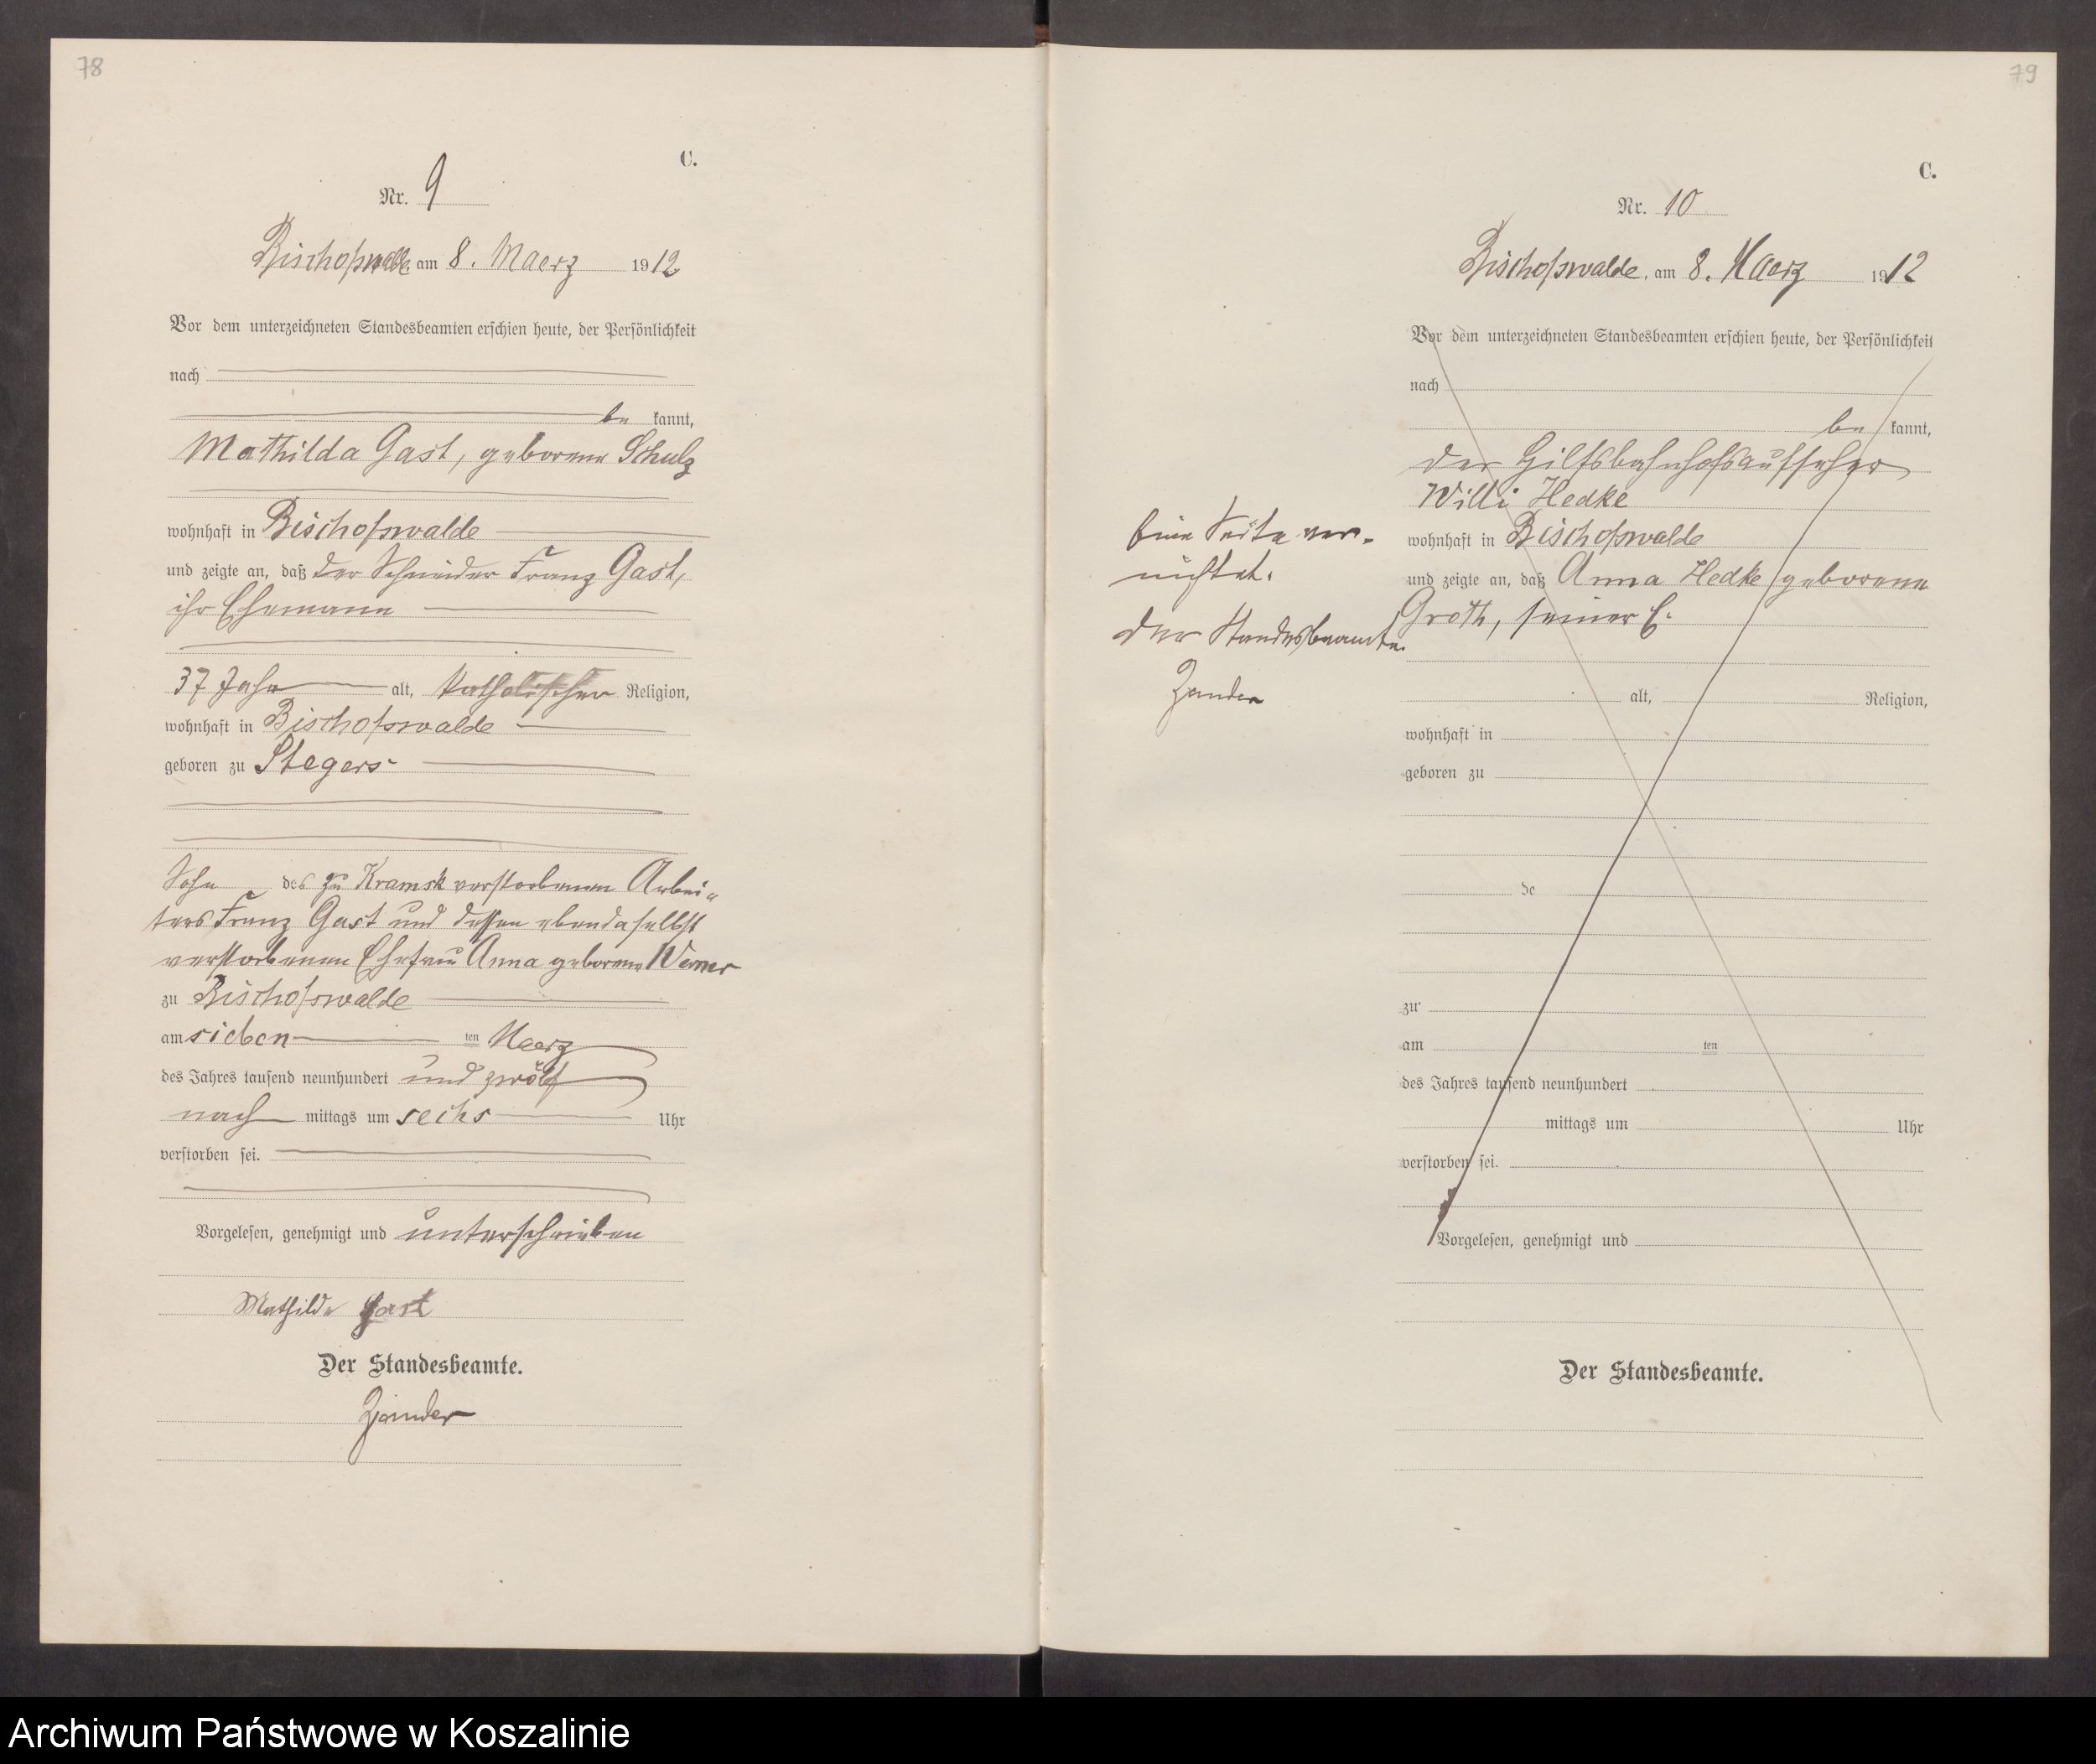 78
C.
Nr. 9
Bischofswalde am 8. Maerz 1912
Vor dem unterzeichneten Standesbeamten erschien heute, der Persönlichkeit
nach
be kannt,
Mathilda Gast, geborene Schulz
wohnhaft in Bischofswalde
und zeigte an, daß der Schneider Franz Gast,
ihr Ehemann
37 Jahr alt, katholischer Religion,
wohnhaft in Bischofswalde
geboren zu Stegers
Sohn des zu Kramsk verstorbenen Arbei-
ters Franz Gast und dessen ebendaselbst
verstorbenen Ehefrau Anna geborene Werner
zu Bischofswalde
am sieben ten Maerz
des Jahres tausend neunhundert und zwölf
nach mittags um sechs Uhr
verstorben sei.
Vorgelesen, genehmigt und unterschrieben
Mathilde Gast
Der Standesbeamte.
Zander
79
C.
Nr. 10
Bischofswalde, am 8. Maerz 1912
Vor dem unterzeichneten Standesbeamten erschien heute, der Persönlichkeit
nach
be kannt,
der Hilfsbahnhofsaufseher
Willi Hedke
wohnhaft in Bischofswalde
und zeigte an, daß Anna Hedke geborene
Groth, seiner E.
alt, Religion,
wohnhaft in
geboren zu
de
zu
am ten
des Jahres tausend neunhundert
mittags um Uhr
verstorben sei.
Vorgelesen, genehmigt und
Der Standesbeamte.
Eine Seite ver-
nichtet.
Der Standesbeamte.
Zander
Archiwum Państwowe w Koszalinie